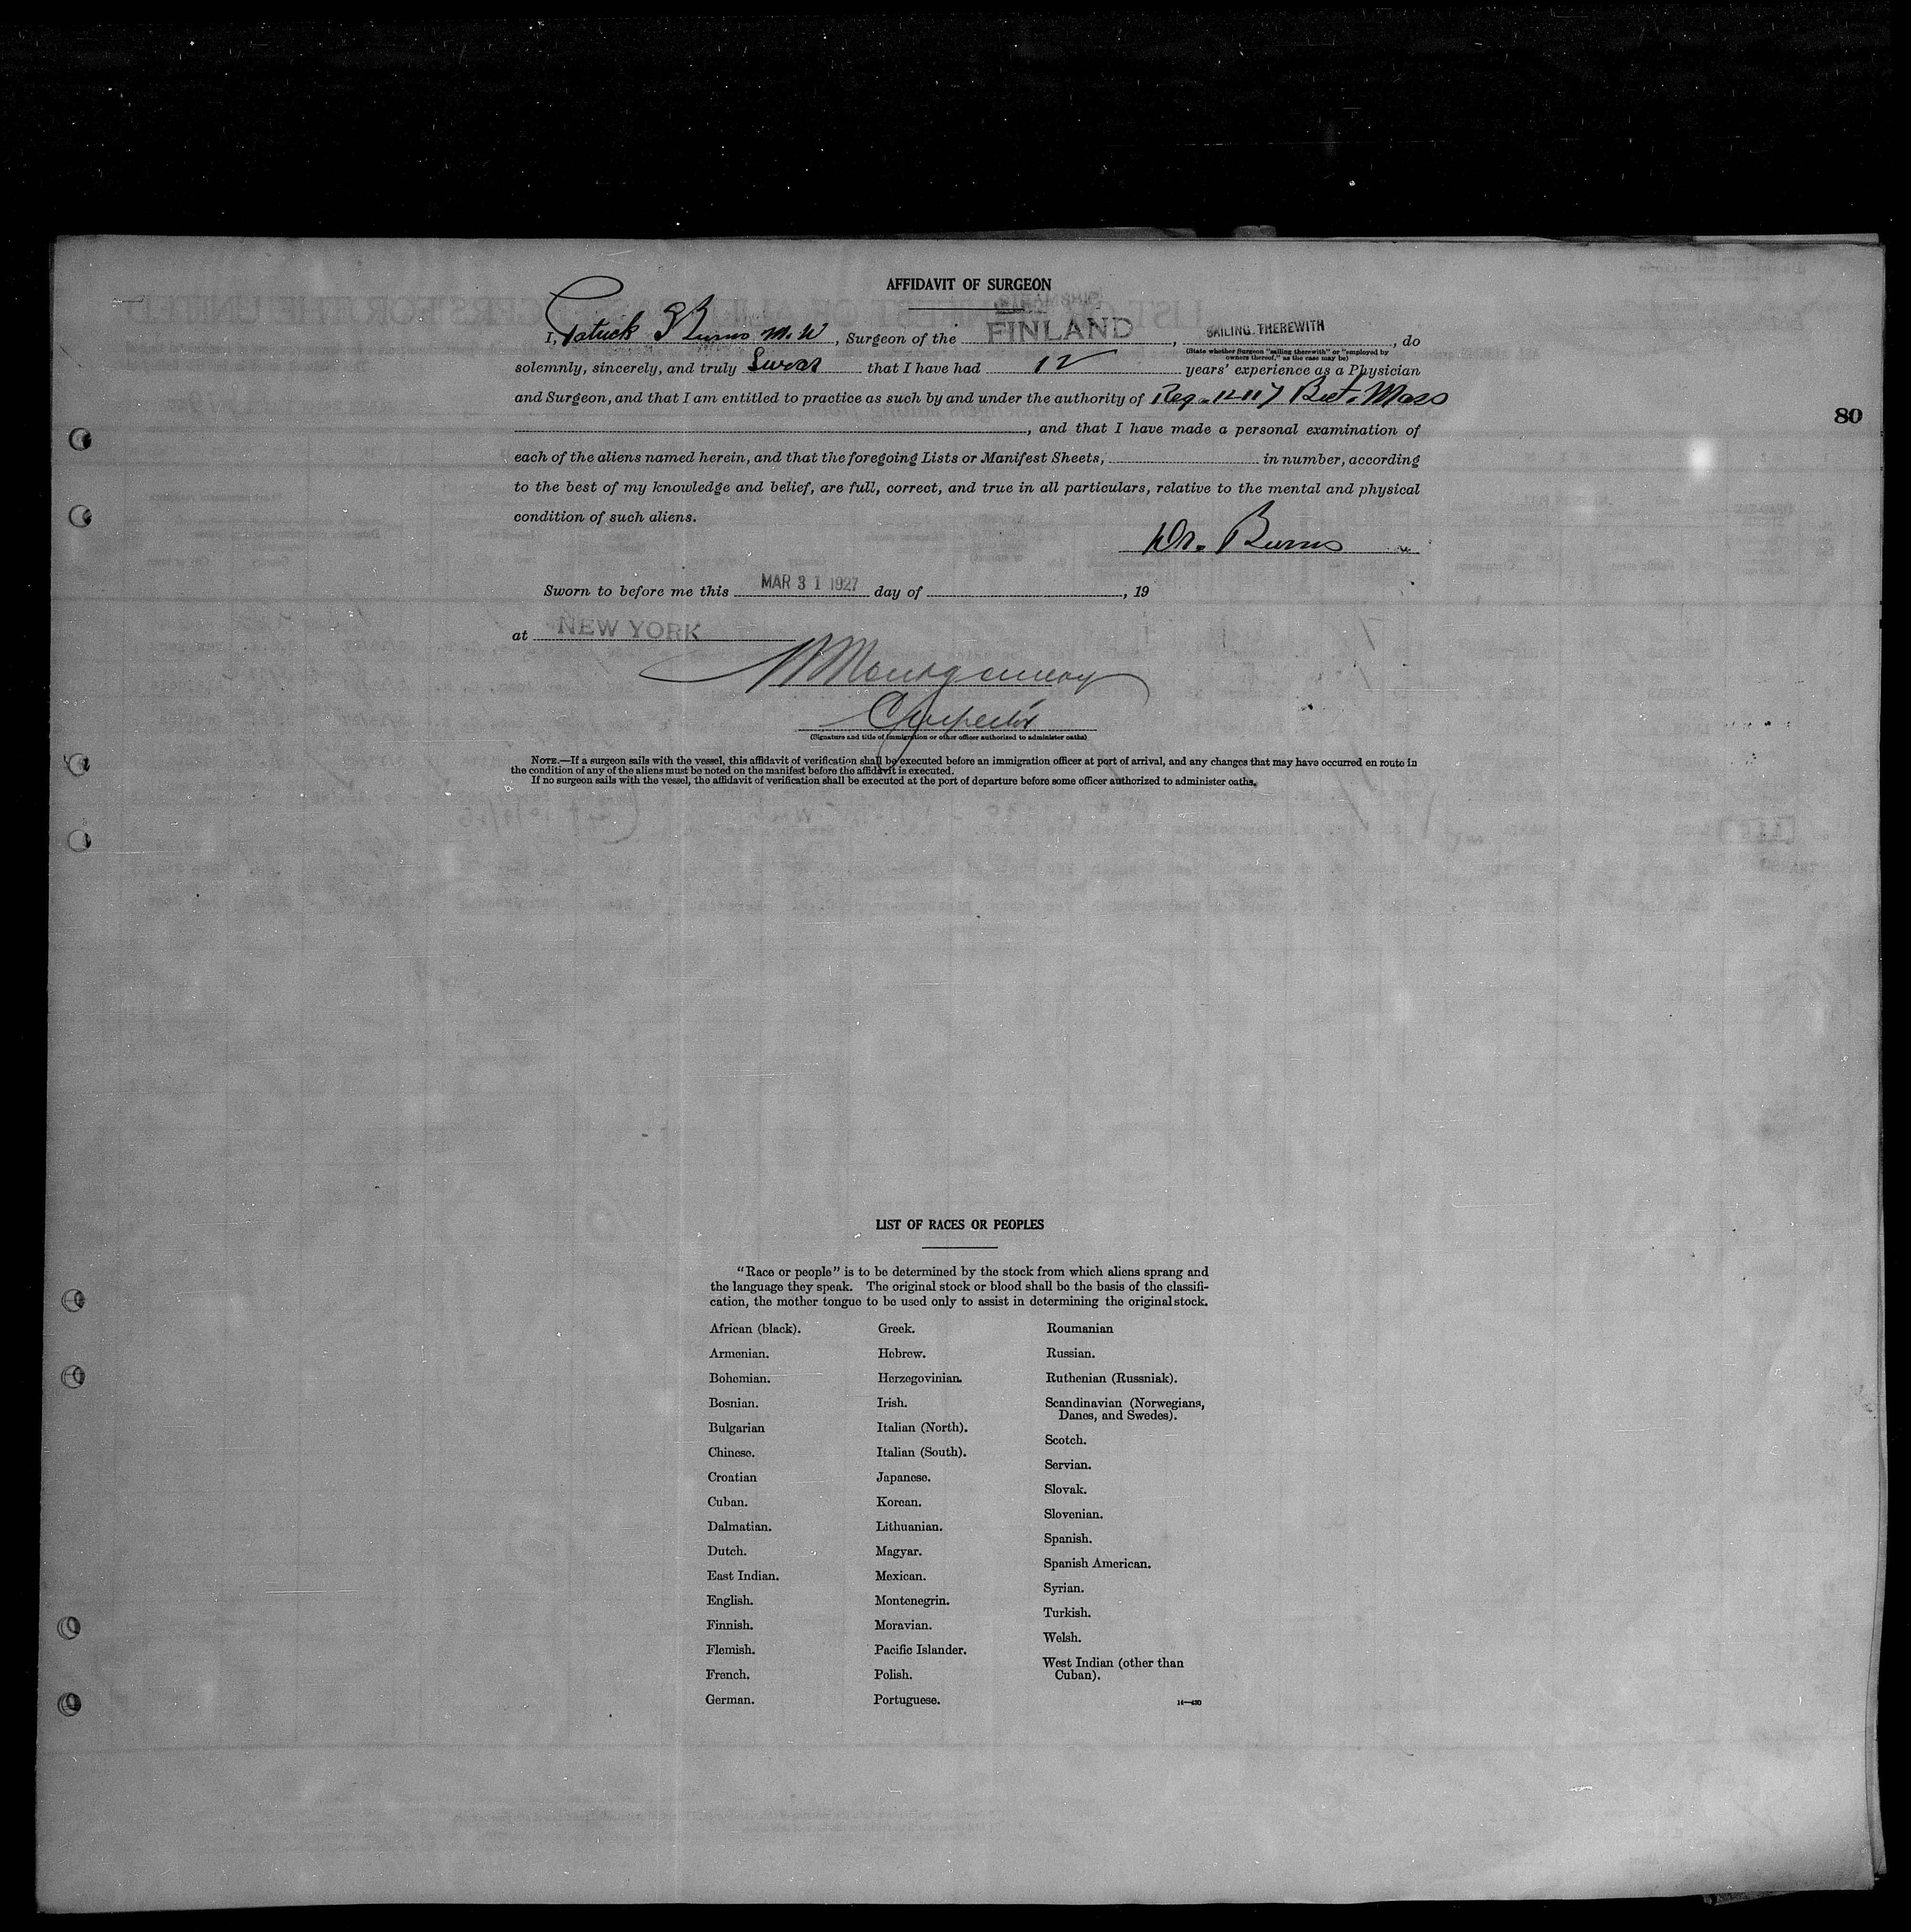 AFFIDAVIT OF SURGEON
STEAMSHIP
I, Patrick S Burns M.D, Surgeon of the FINLAND, SAILING THEREWITH, do
(State whether Surgeon "sailing therewith" or "employed by owners thereof," as the case may be)
solemnly, sincerely, and truly Swear that I have had 12 years' experience as a Physician
and Surgeon, and that I am entitled to practice as such by and under the authority of Reg. Mass
, and that I have made a personal examination of
each of the aliens named herein, and that the foregoing Lists or Manifest Sheets, in number, according
to the best of my knowledge and belief, are full, correct, and true in all particulars, relative to the mental and physical
condition of such aliens.
80
Dr. Burns
Sworn to before me this MAR 31 1927 day of , 19
at NEW YORK
Montgomery
Inspector
(Signature and title of immigration or other officer authorized to administer oaths)
NOTE.—If a surgeon sails with the vessel, this affidavit of verification shall be executed before an immigration officer at port of arrival, and any changes that may have occurred en route in
the condition of any of the aliens must be noted on the manifest before the affidavit is executed.
If no surgeon sails with the vessel, the affidavit of verification shall be executed at the port of departure before some officer authorized to administer oaths.
LIST OF RACES OR PEOPLES
"Race or people" is to be determined by the stock from which aliens sprang and
the language they speak. The original stock or blood shall be the basis of the classifi-
cation, the mother tongue to be used only to assist in determining the original stock.
African (black).
Armenian.
Bohemian.
Bosnian.
Bulgarian
Chinese.
Croatian
Cuban.
Dalmatian.
Dutch.
East Indian.
English.
Finnish.
Flemish.
French.
German.
Greek.
Hebrew.
Herzegovinian.
Irish.
Italian (North).
Italian (South).
Japanese.
Korean.
Lithuanian.
Magyar.
Mexican.
Montenegrin.
Moravian.
Pacific Islander.
Polish.
Portuguese.
Roumanian
Russian.
Ruthenian (Russniak).
Scandinavian (Norwegians,
Danes, and Swedes).
Scotch.
Servian.
Slovak.
Slovenian.
Spanish.
Spanish American.
Syrian.
Turkish.
Welsh.
West Indian (other than
Cuban).
14—430